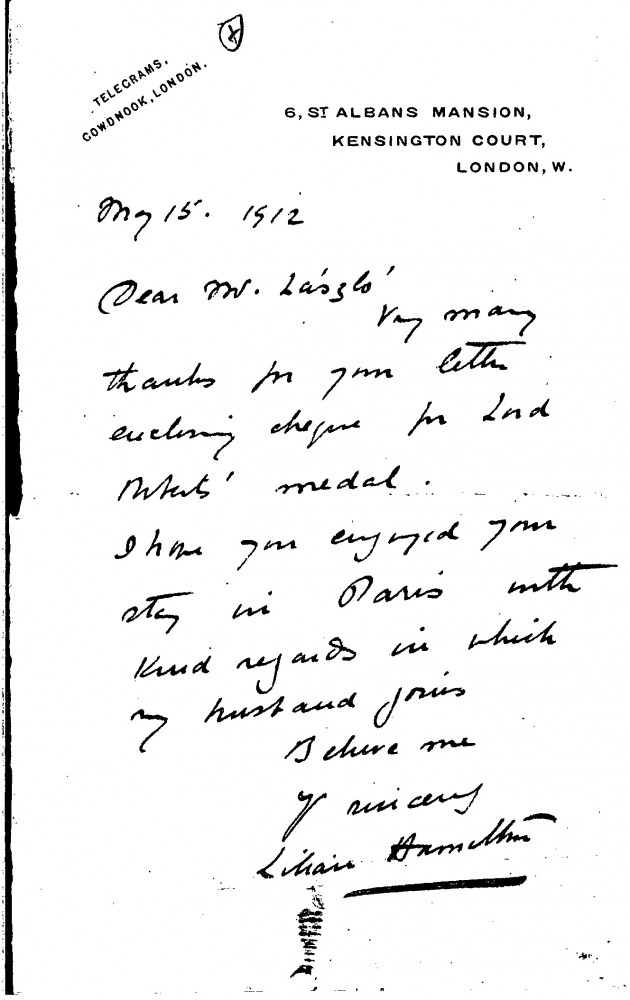 TELEGRAMS,
COWDNOOK, LONDON.
6, ST ALBANS MANSION,
KENSINGTON COURT,
LONDON, W.
May 15. 1912
Dear Mr. László
Very many
thanks for your letter
enclosing cheque for Lord
Roberts' medal.
I hope you enjoyed your
stay in Paris with
Kind regards in which
my husband joins
Believe me
Yr sincerely
Lilian Hamilton